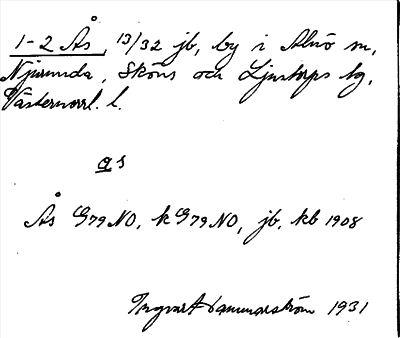 1-2 Ås, 13/32 jb, by i Alnö sn,
Njurunda, Sköns och Ljustorps tg,
Västernorrl. l.
ås
Ås G79NO, k G79NO, jb. kb 1908
Ingvart Hammarström 1931